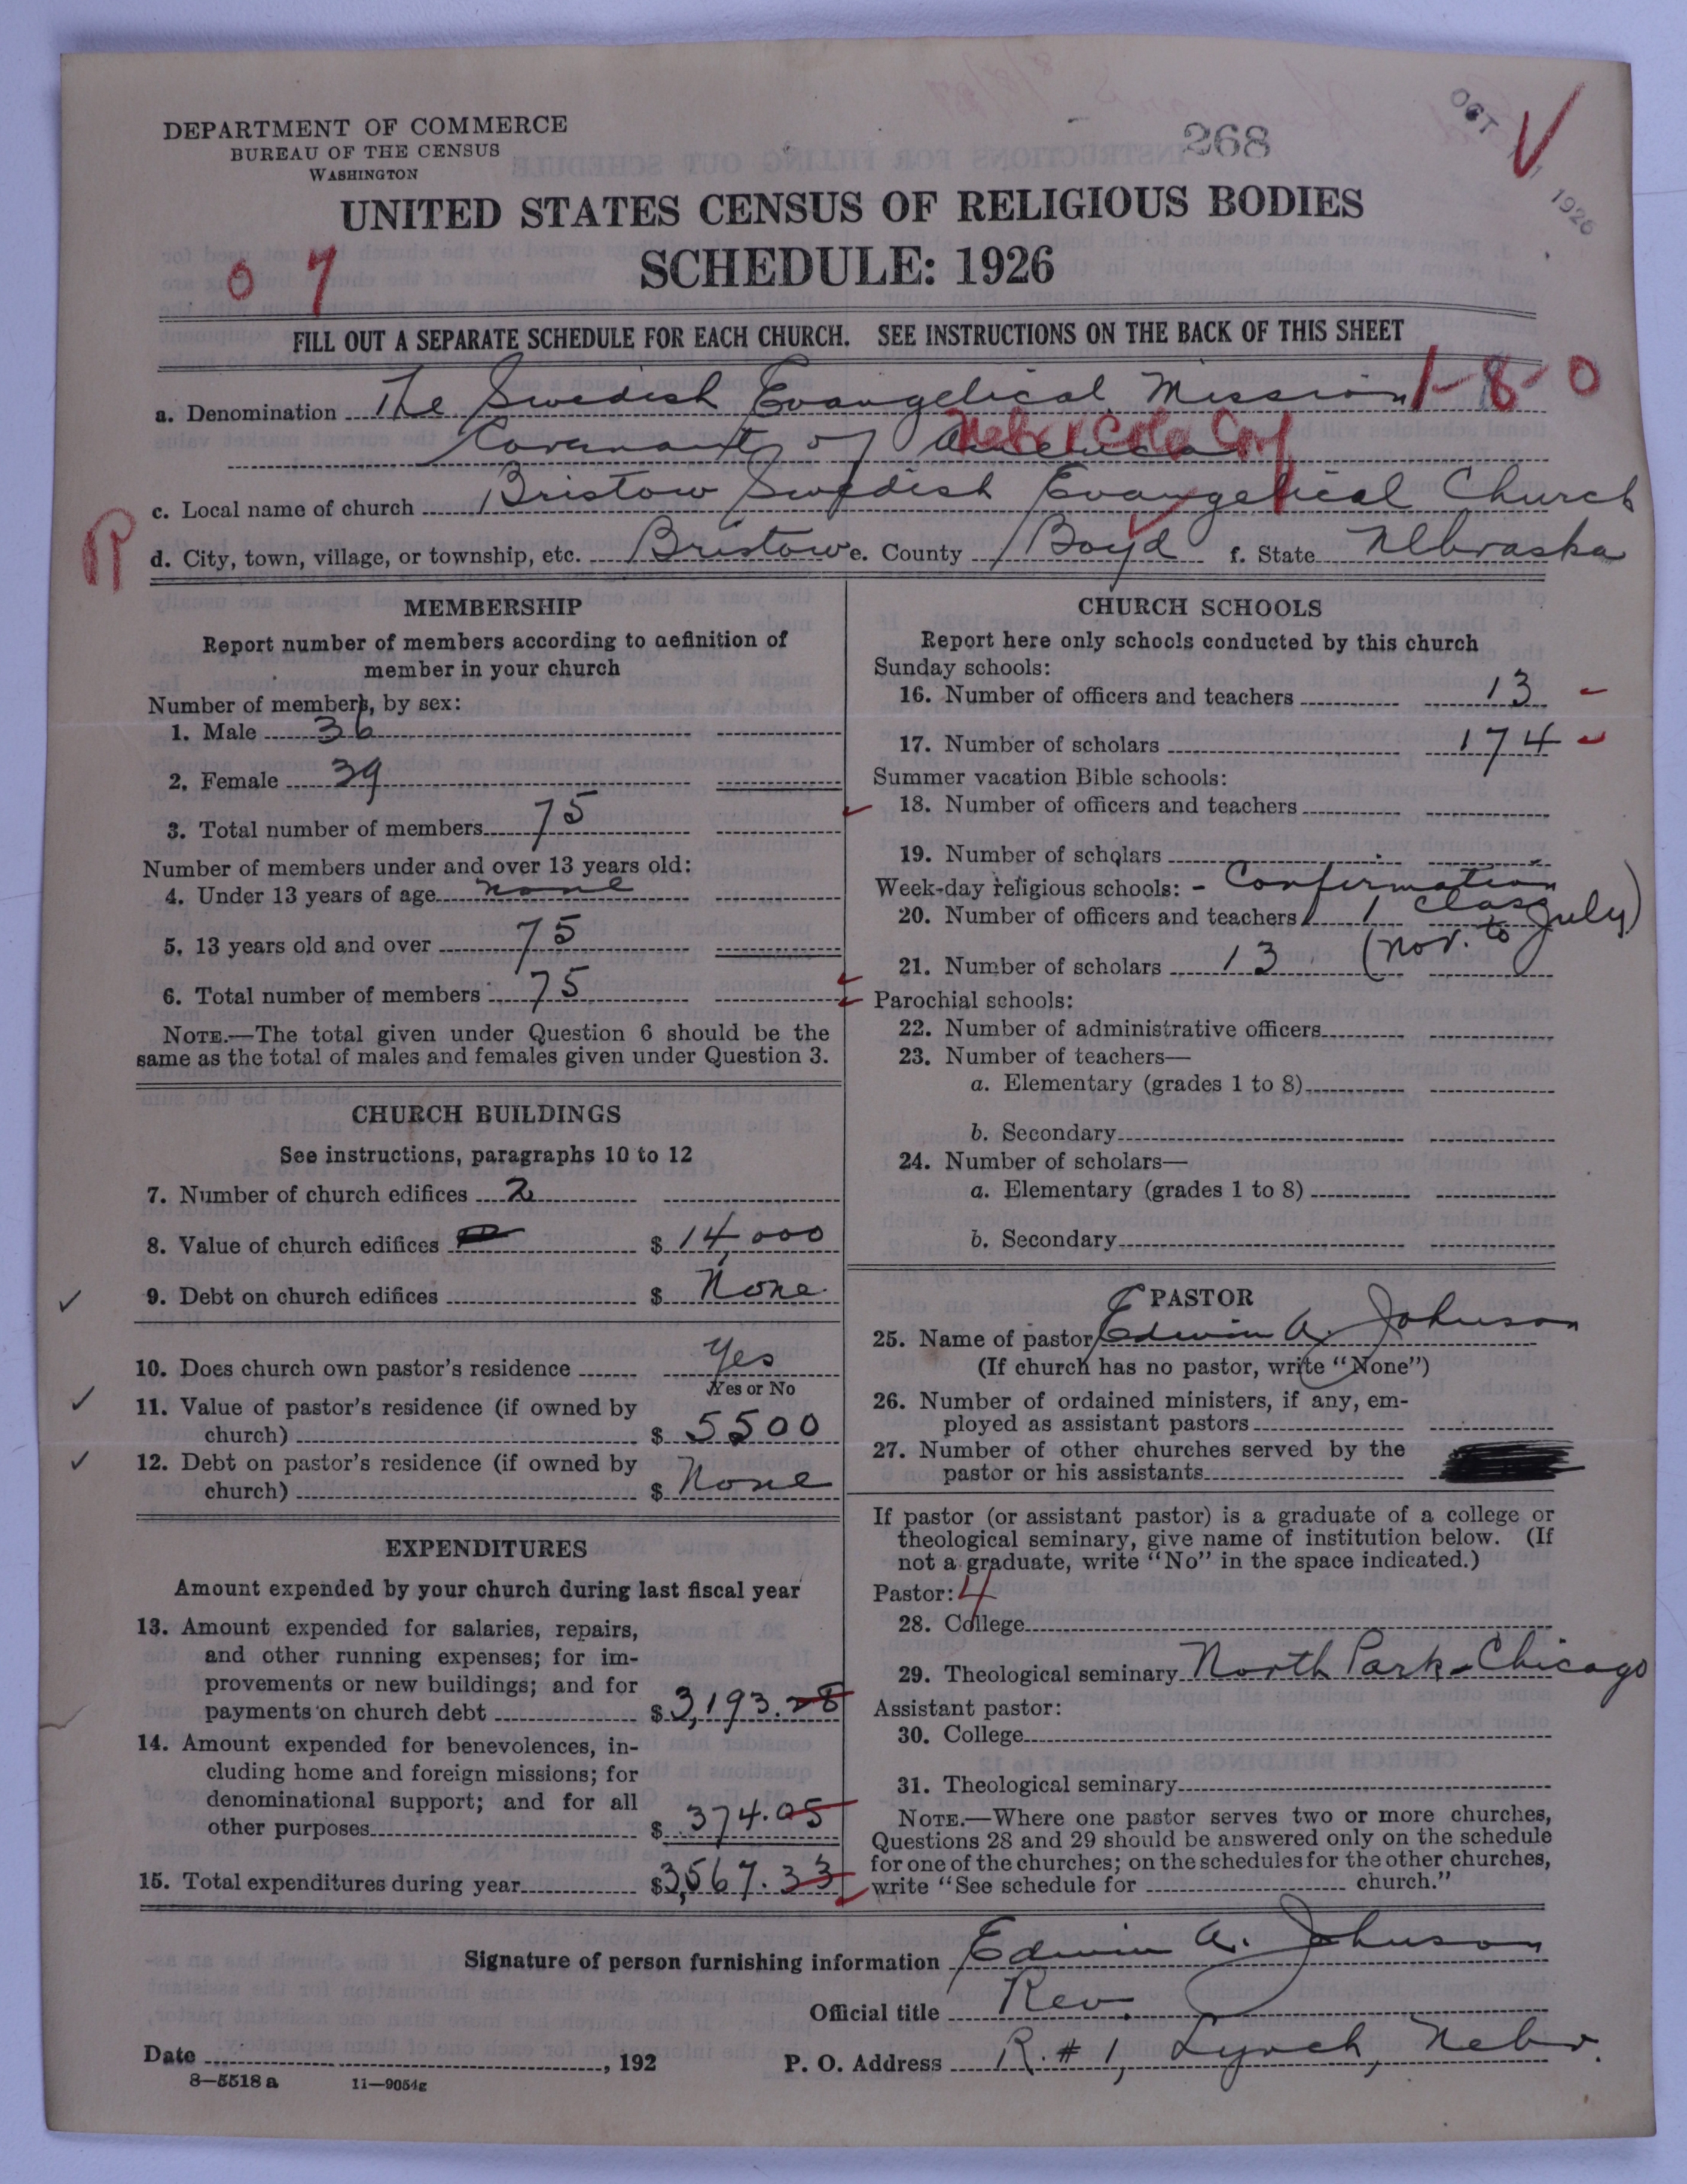 DEPARTMENT OF COMMERCE
BUREAU OF THE CENSUS
WASHINGTON
268
OCT 1926
UNITED STATES CENSUS OF RELIGIOUS BODIES
SCHEDULE: 1926
0 7
FILL OUT A SEPARATE SCHEDULE FOR EACH CHURCH. SEE INSTRUCTIONS ON THE BACK OF THIS SHEET
1-8-0
a. Denomination The Swedish Evangelical Mission
Covenant of America
Nebr & Colo Conf
c. Local name of church Bristow Swedish Evangelical Church
R
d. City, town, village, or township, etc. Bristow e. County Boyd f. State Nebraska
MEMBERSHIP
Report number of members according to definition of
member in your church
Number of members, by sex:
1. Male 36
2. Female 39
3. Total number of members 75
Number of members under and over 13 years old:
4. Under 13 years of age none
5. 13 years old and over 75
6. Total number of members 75
NOTE.—The total given under Question 6 should be the
same as the total of males and females given under Question 3.
CHURCH BUILDINGS
See instructions, paragraphs 10 to 12
7. Number of church edifices 2
8. Value of church edifices $ 14,000
9. Debt on church edifices $ None
10. Does church own pastor's residence Yes
Yes or No
11. Value of pastor's residence (if owned by
church) $ 5500
12. Debt on pastor's residence (if owned by
church) $ None
EXPENDITURES
Amount expended by your church during last fiscal year
13. Amount expended for salaries, repairs,
and other running expenses; for im-
provements or new buildings; and for
payments on church debt $ 3,193.28
14. Amount expended for benevolences, in-
cluding home and foreign missions; for
denominational support; and for all
other purposes $ 374.05
15. Total expenditures during year $3,567.33
CHURCH SCHOOLS
Report here only schools conducted by this church
Sunday schools:
16. Number of officers and teachers 13
17. Number of scholars 174
Summer vacation Bible schools:
18. Number of officers and teachers
19. Number of scholars
Week-day religious schools: - Confirmation
20. Number of officers and teachers 1 class
21. Number of scholars 13 (Nov. to July)
Parochial schools:
22. Number of administrative officers
23. Number of teachers—
a. Elementary (grades 1 to 8)
b. Secondary
24. Number of scholars—
a. Elementary (grades 1 to 8)
b. Secondary
PASTOR
25. Name of pastor Edwin A. Johnson
(If church has no pastor, write "None")
26. Number of ordained ministers, if any, em-
ployed as assistant pastors
27. Number of other churches served by the
pastor or his assistants
If pastor (or assistant pastor) is a graduate of a college or
theological seminary, give name of institution below. (If
not a graduate, write "No" in the space indicated.)
Pastor: 4
28. College
29. Theological seminary North Park - Chicago
Assistant pastor:
30. College
31. Theological seminary
NOTE.—Where one pastor serves two or more churches,
Questions 28 and 29 should be answered only on the schedule
for one of the churches; on the schedules for the other churches,
write "See schedule for church."
Signature of person furnishing information Edwin A. Johnson
Official title Rev.
Date , 192 P. O. Address R. # 1, Lynch, Nebr.
8—5518 a 11—9054g